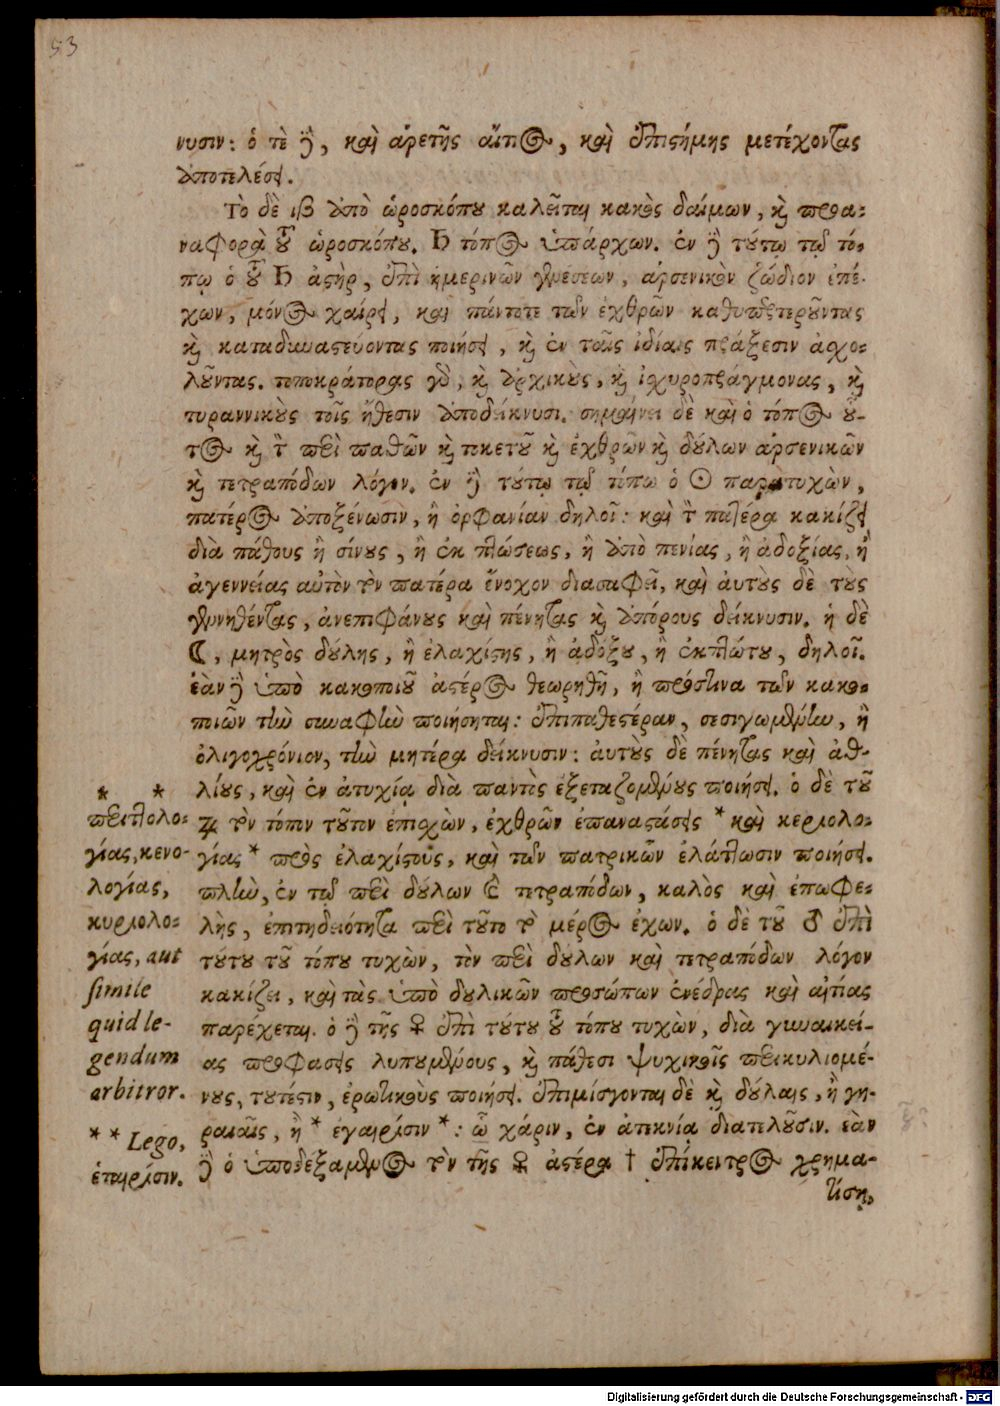 53
νυσιν: ὁ τὲ ☿, καὶ ἀρετῆς αἴτιος, καὶ ἐπιστήμης μετέχοντας
ἀποτελέσει.
Τὸ δὲ ιβ ἀπὸ ὡροσκόπου καλεῖται κακὸς δαίμων, καὶ προα-
ναφορὰ τοῦ ὡροσκόπου. ♄ τόπος ὑπάρχων. ἐν δὲ τούτῳ τῷ τό-
πῳ ὁ τοῦ ♄ ἀστὴρ, ἐπὶ ἡμερινῶν γενέσεων, ἀρσενικὸν ζώδιον ἐπέ-
χων, μόνος χαίρει, καὶ πάντοτε τῶν ἐχθρῶν καθυπερτεροῦντας
καὶ καταδυναστεύοντας ποιήσει, καὶ ἐν ταῖς ἰδίαις πράξεσιν ἀχο-
λοῦντας. τοποκράτορας γὰρ, καὶ ἀρχικοὺς, καὶ ἰχυροπράγμονας, καὶ
τυραννικοὺς τοῖς ἤθεσιν ἀποδείκνυσι. σημαίνει δὲ καὶ ὁ τόπος οὗ-
τος καὶ τὸν περὶ παθῶν καὶ τοκετοῦ καὶ ἐχθρῶν καὶ δούλων ἀρσενικῶν
καὶ τετραπόδων λόγον. ἐν δὲ τούτῳ τῷ τόπῳ ὁ ☉ παρατυχὼν,
πατέρος ἀποξένωσιν, ἢ ὀρφανίαν δηλοῖ: καὶ τὸν πατέρα κακίζει
διὰ πάθους ἢ σίνους, ἢ ἐκ πτώσεως, ἢ ἀπὸ πενίας, ἢ ἀδοξίας, ἢ
ἀγεννείας αὐτὸν τὸν πατέρα ἔνοχον διασαφεῖ, καὶ αὐτοὺς δὲ τοὺς
γεννηθέντας, ἀνεπιφάνους καὶ πένητας καὶ ἀπόρους δείκνυσιν. ἡ δὲ
☾, μητρὸς δούλης, ἢ ἐλαχίστης, ἢ ἀδόξου, ἢ ἐκπτώτου, δηλοῖ.
ἐὰν δὲ ὑπὸ κακοποιοῦ ἀστέρος θεωρηθῇ, ἢ πρός τινα τῶν κακο-
ποιῶν τὴν συναφὴν ποιήσηται: ἐπιπαθεστέραν, σεσιγωμένην, ἢ
ὀλιγοχρόνιον, τὴν μητέρα δείκνυσιν: ἀυτοὺς δὲ πένητας καὶ ἀθ-
λίους, καὶ ἐν ἀτυχίᾳ διὰ παντὸς ἐξεταζομένους ποιήσει. ὁ δὲ τοῦ
♃ τὸν τόπον τοῦτον ἐπισχὼν, ἐχθρῶν ἐπαναστάσεις * καὶ κερμολο-
γίας * πρὸς ἐλαχίστους, καὶ τῶν πατρικῶν ἐλάττωσιν ποιήσει.
πλὴν, ἐν τῷ περὶ δούλων καὶ τετραπόδων, καλὸς καὶ ἐπωφε-
λὴς, ἐπιτηδειότητα περὶ τοῦτο τὸ μέρος ἔχων. ὁ δὲ τοῦ ♂ ἐπὶ
τούτου τοῦ τόπου τυχὼν, τὸν περὶ δούλων καὶ τετραπόδων λόγον
κακίζει, καὶ τὰς ὑπὸ δουλικῶν προσώπων ἐνέδρας καὶ αἰτίας
παρέχεται. ὁ δὲ τῆς ♀ ἐπὶ τούτου τοῦ τόπου τυχὼν, διὰ γυναικεί-
ας προφάσεις λυπουμένους, καὶ πάθεσι ψυχικοῖς περικυλιομέ-
νους, τουτέστιν, ἐρωτικοὺς ποιήσει. ἐπιμίσγονται δὲ καὶ δούλαις, ἢ γη-
ραιαῖς, ἢ * ἐγαιρίσιν *: ὧ χάριν, ἐν ἀτεκνίᾳ διατελοῦσιν. ἐὰν
δὲ ὁ ὑποδεξάμενος τὸν τῆς ♀ ἀστέρα † ἐπίκεντρος χρημα-
τίσῃ,
* *
περιττολο-
γίας, κενο-
λογίας,
κυριολο-
γίας, aut
simile
quid le-
gendum
arbitror.
* * Lego,
ἑταιρίσιν.
Digitalisierung gefördert durch die Deutsche Forschungsgemeinschaft - DFG